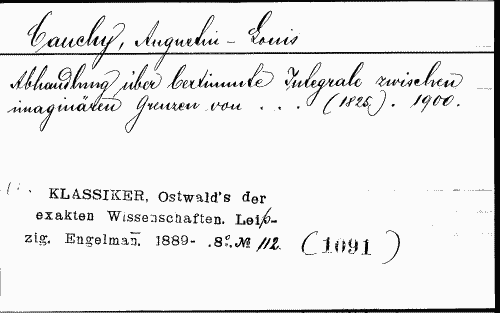 Cauchy, Augustin-Louis
Abhandlung über bestimmte Integrale zwischen
imaginären Grenzen von . . . (1825). 1900.
KLASSIKER, Ostwald's der
exakten Wissenschaften. Leip-
zig. Engelman̄. 1889- .8°. № 112. (1091)